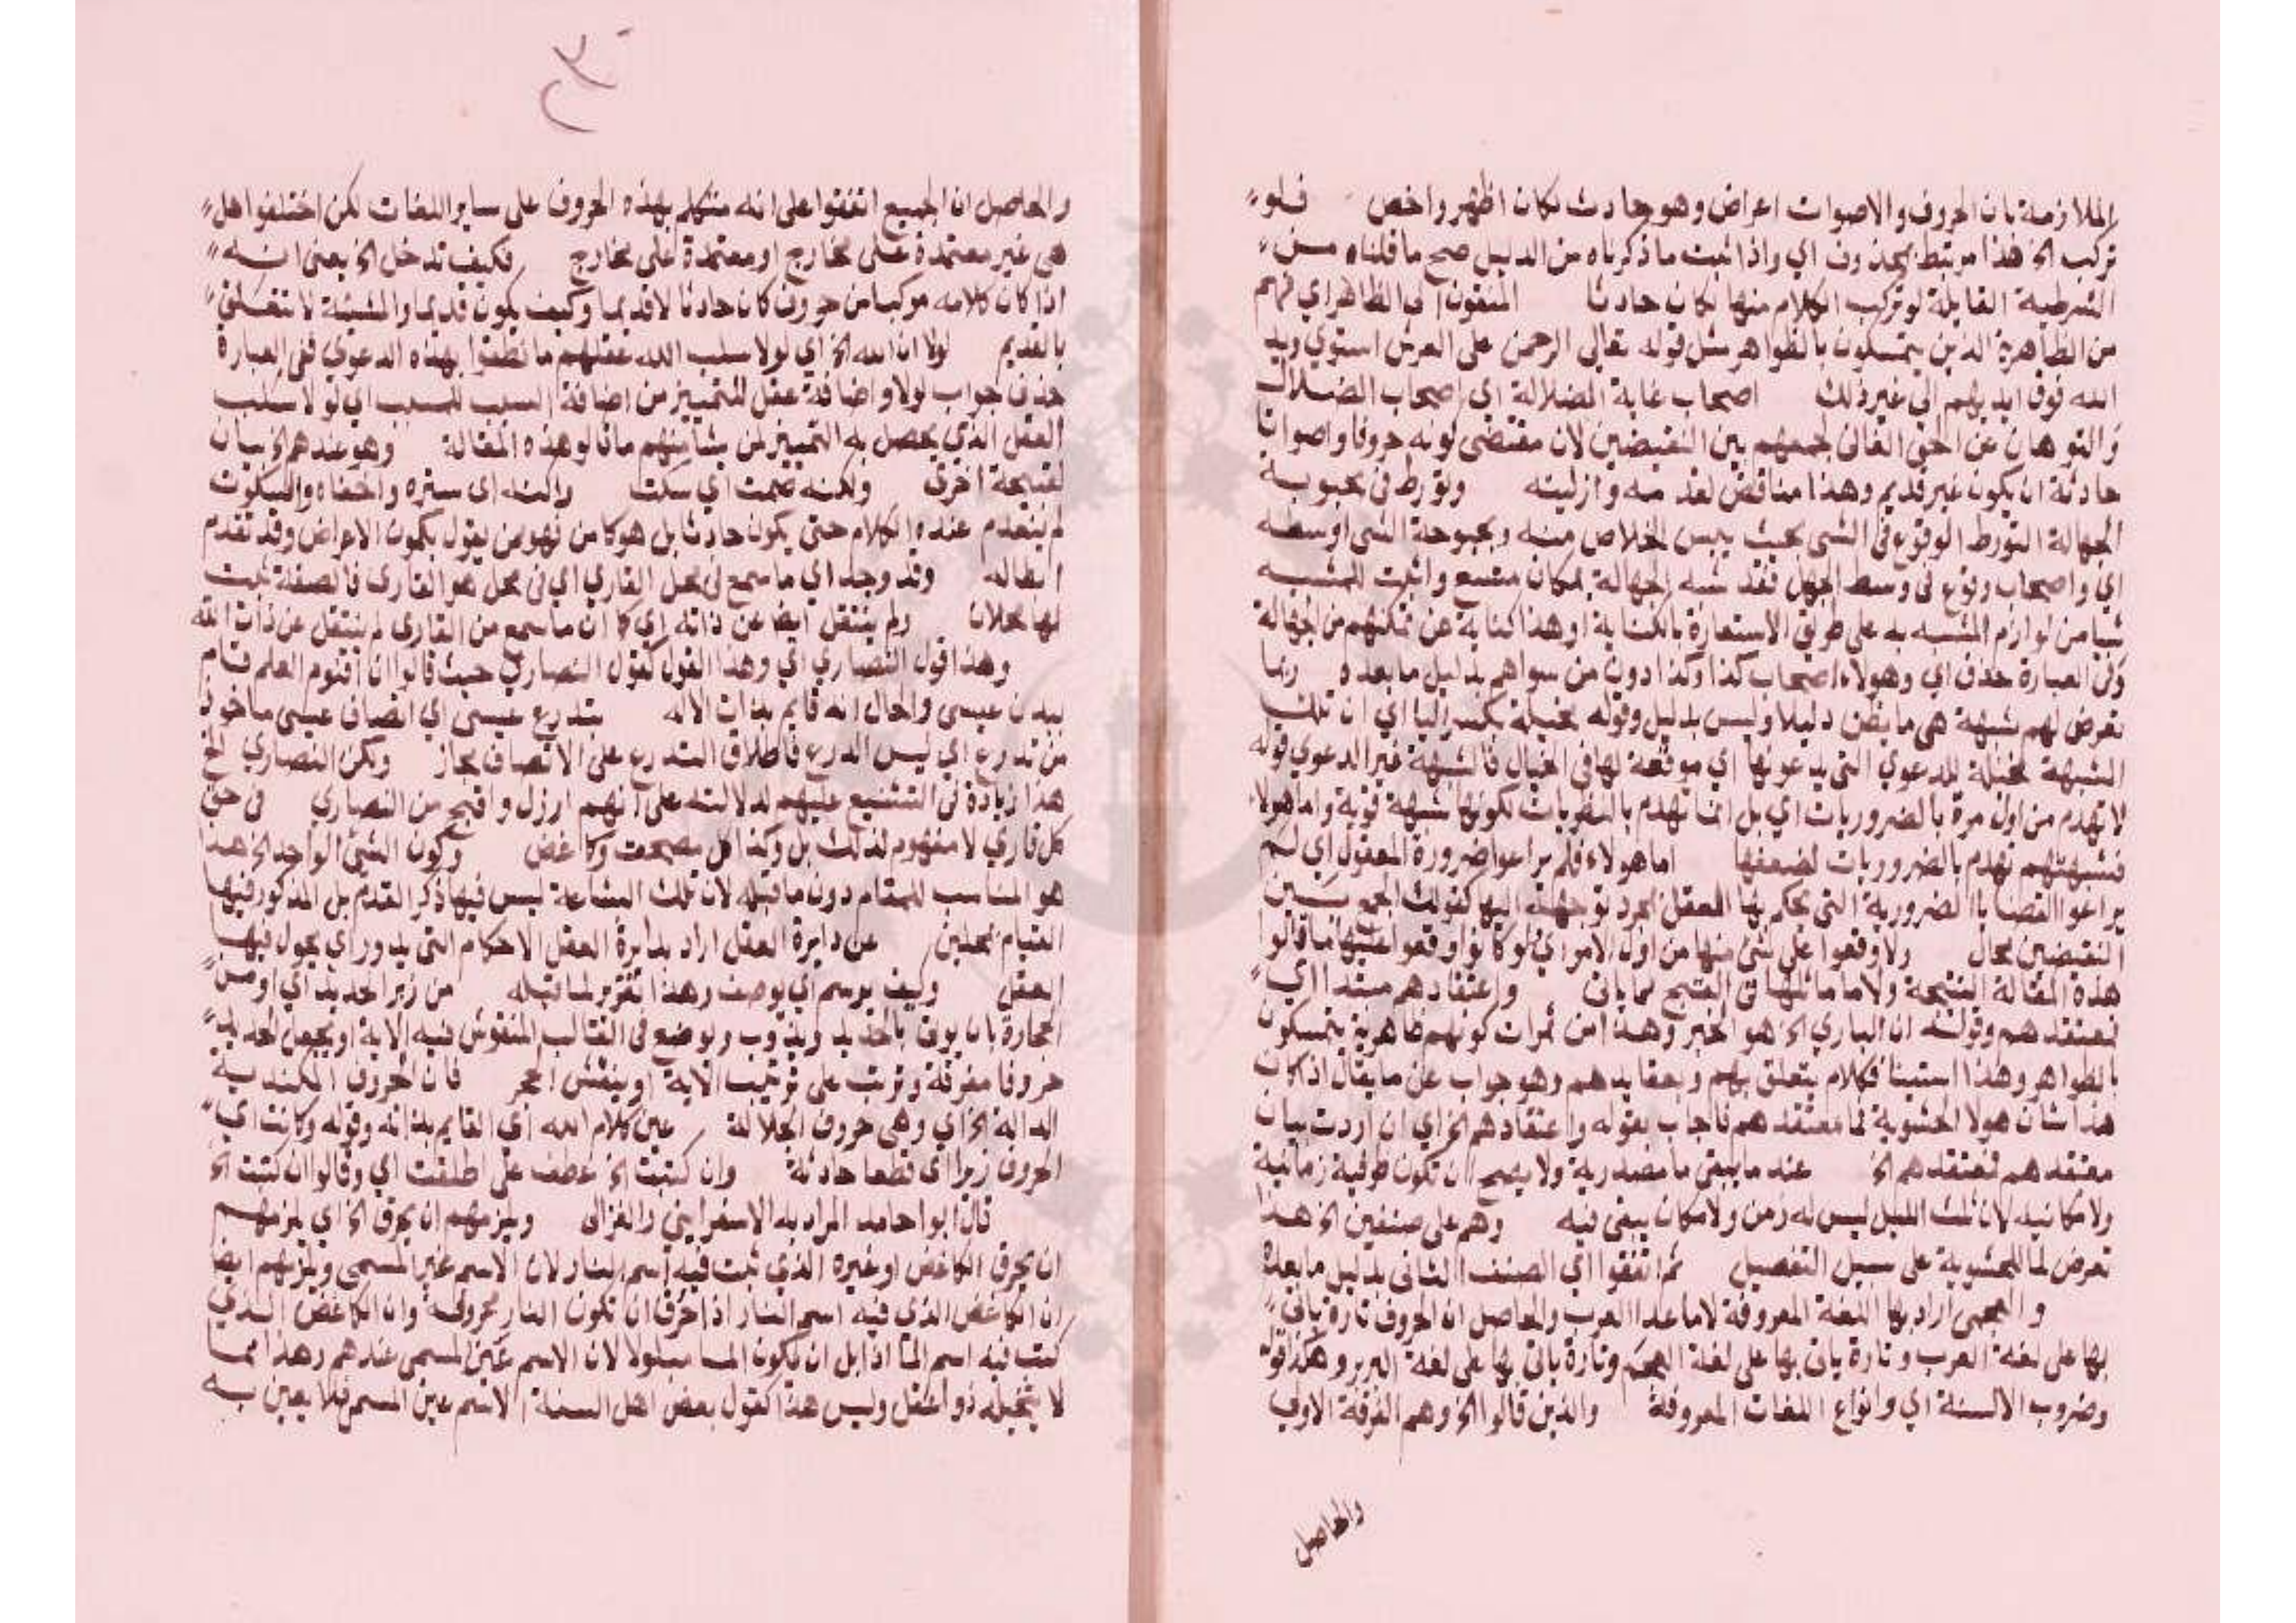 الملازمة بان الحروف والاصوات اعراض وهو حادث لكان اظهر واخص فلو
تركب الخ هذا مرتبط بمحذوف اي واذا ثبت ما ذكرناه من الدليل صح ما قلناه من
الشرطية القايلة لو تركب الكلام منها لكان حادثا المنقون الى الظاهر اي فهم
من الظاهرية الذين يتمسكون بالظواهر مثل قوله تعالى الرحمن على العرش استوي ويد
الله فوق ايديهم الي غير ذلك اصحاب غاية الضلالة اي اصحاب الضلال
والتوهان عن الحق الفاني لجمعهم بين النقيضين لان مقتضى كونه حروفا واصواتا
حادثة ان يكون غير قديم وهذا مناقض لقدمه وازليته وتورط في بحبوبة
الجهالة التورط الوقوع في الشي بحيث ييس الخلاص منه وبحبوحة الشي اوسطه
اي واصحاب وقوع في وسط الجهل فقد شبه الجهالة بمكان متسع واثبت للمشبه
شيا من لوازم المشبه به على طريق الاستعارة بالكناية او هذا كناية عن تمكنهم من الجهالة
وفي العبارة حذف اي وهولاء اصحاب كذا وكذا دون من سواهم بدليل ما بعده ربما
تعرض لهم شبهة هي ما يظن دليلا وليس بدليل وقوله مخيلة بكسر اليا اي ان تلك
الشبهة مخيلة للدعوي التي يدعونها اي موقعة لها في الخيال فالشبهة غير الدعوي قوله
لا تهدم من اول مرة بالضروريات اي بل انما تهدم بالنظريات لكونها شبهة قوية واما هولاء
فشبهتهم تهدم بالضروريات لضعفها اما هولاء فلم يراعوا ضرورة المعقول اي لم
يراعوا القضايا الضرورية التي يحكم بها العقل بمجرد توجهه اليها كقولك الجمع بين
النقيضين محال ولا وقعوا على شئ منها من اول الامر اي لو كانوا وقعوا عليها ما قالوا
هذه المقالة القبيحة ولا ما ماثلها في القبح مما ياتي واعتقادهم مبتدا اي
فمعتقدهم وقوله ان الباري الخ هو الخبر وهذا من ثمرات كونهم ظاهرية يتمسكون
بالظواهر وهذا استينافكلام يتعلق بهم وبعقايدهم وهو جواب عن ما يقال اذا كان
هذا شان هولا الحشوية فما معتقدهم فاجاب بقوله واعتقادهم الخ اي ان اردت بيان
معتقدهم فمعتقدهم الخ عند ما يبقى ما مصدرية ولا يصح ان تكون ظرفية زمانية
ولا مكانيه لان ثلث الليل ليس له زمن ولا مكان يبقى فيه وهم على صنفين الخ هذا
تعرض لما للحشوية على سبيل التفصيل ثم اتفقوا اي الصنف الثاني بدليل ما بعده
و العجمى اراد بها اللغة المعروفة لا ما عدا العرب والحاصل ان الحروف تارة ياتي
بها على لغة العرب وتارة ياتي بها على لغة العجم وتارة ياتي بها على لغة البربر وهكذا قوله
وضروب الالسنة اي وانواع اللغات المعروفة والذين قالوا الخ وهم الفرقة الاولي
والحاصل
والحاصل ان الجميع اتفقوا على انه متكلم بهذه الحروف على ساير اللغات لكن اختلفوا هل
هي غير معتمدة على مخارج او معتمدة على مخارج فكيف تدخل الخ يعنى انه
اذا كان كلامه مركبا من حروف كان حادثا لا قديما وكيف يكون قديما والمشيئة لا تتعلق
بالقديم لولا ان الله الخ اي لولا سلب الله عقلهم ما نطقوا بهذه الدعوي ففي العبارة
حذف جواب لولا واضافة عقل للتمييز من اضافة السبب للمسبب اي لولا سلب
العقل الذي يحصل به التمييز من شانهم ما قالو هذه المقالة وهو عندهم الخ بيان
لقبيحة اخرى ولكنه صمت اي سكت والله اى ستره واخفاه والسكوت
لم ينعدم عنده الكلام حتى يكون حادثا بل هو كامن فهو من يقول بكمون الاعراض وقد تقدم
ابطاله وقد وجد اي ما سمع في محل القاري اي في محل هو القارى فالصفة ثبت
لها محلان ولم ينتقل ايضا عن ذاته اي كما ان ما سمع من القارى لم ينتقل عن ذات الله
وهذا قول النصاري اي وهذا القول كقول النصاري حيث قالوا ان اقنوم العلم قام
ببدن عيسى والحال انه قايم بذات الاله بتدرع عيسى اي اتصاف عيسى ماخوذ
من تدرع اي لبس الدرع فاطلاق التدرع على الاتصاف مجاز ولكن النصاري الخ
هذا زيادة في التشنيع عليهم لدلالته على انهم ارزل واقبح من النصاري في حق
كل قاري لا مفهوم لذلك بل وكذا كل مصحف وكاغض وكون الشئ الواحد الخ هذا
هو المناسب للمقام دون ما قبله لان تلك الشناعة ليس فيها ذكر القدم بل المذكور فيها
القيام بمحلين عن دايرة العقل اراد بدايرة العقل الاحكام التي يدور اي يجول فيها
العقل وكيف يرسم اي يوصف وهذا تقرير لما قبله من زبر الحديد اي او من
الحجارة بان يوتى بالحديد ويذوب ويوضع في القالب المنقوش فيه الاية او يجعل الحديد
حروفا مفرقة وترتب على ترتيب الاية او ينقش الحجر فان الحروف الكندية
الدالة الخ اي وهي حروف الجلالة عين كلام الله اي القايم بذاته وقوله وكانت اي
الحروف زبرا اى قطعا حادثة وان كتبت الخ عطف على اطلقت اي وقالوا ان كتبت الخ
قال ابوا حامد المراد به الاسفرايني والغزالى ويلزمهم ان يحرق الخ اي يلزمهم
ان يحرق الكاغض او غيره الذي ثبت فيه اسم النار لان الاسم غير المسمى ويلزمهم ايضا
ان الكاغض الذي فيه اسم النار اذا حرق ان تكون النار محروقة وان الكاغض الذي
كتب فيه اسم الما اذا بل ان يكون الما مبلولا لان الاسم عين المسمى عندهم وهذا مما
لا يتخيله ذو اعقل وليس هذا كقول بعض اهل السنة الاسم عين المسمى فلا يعين به